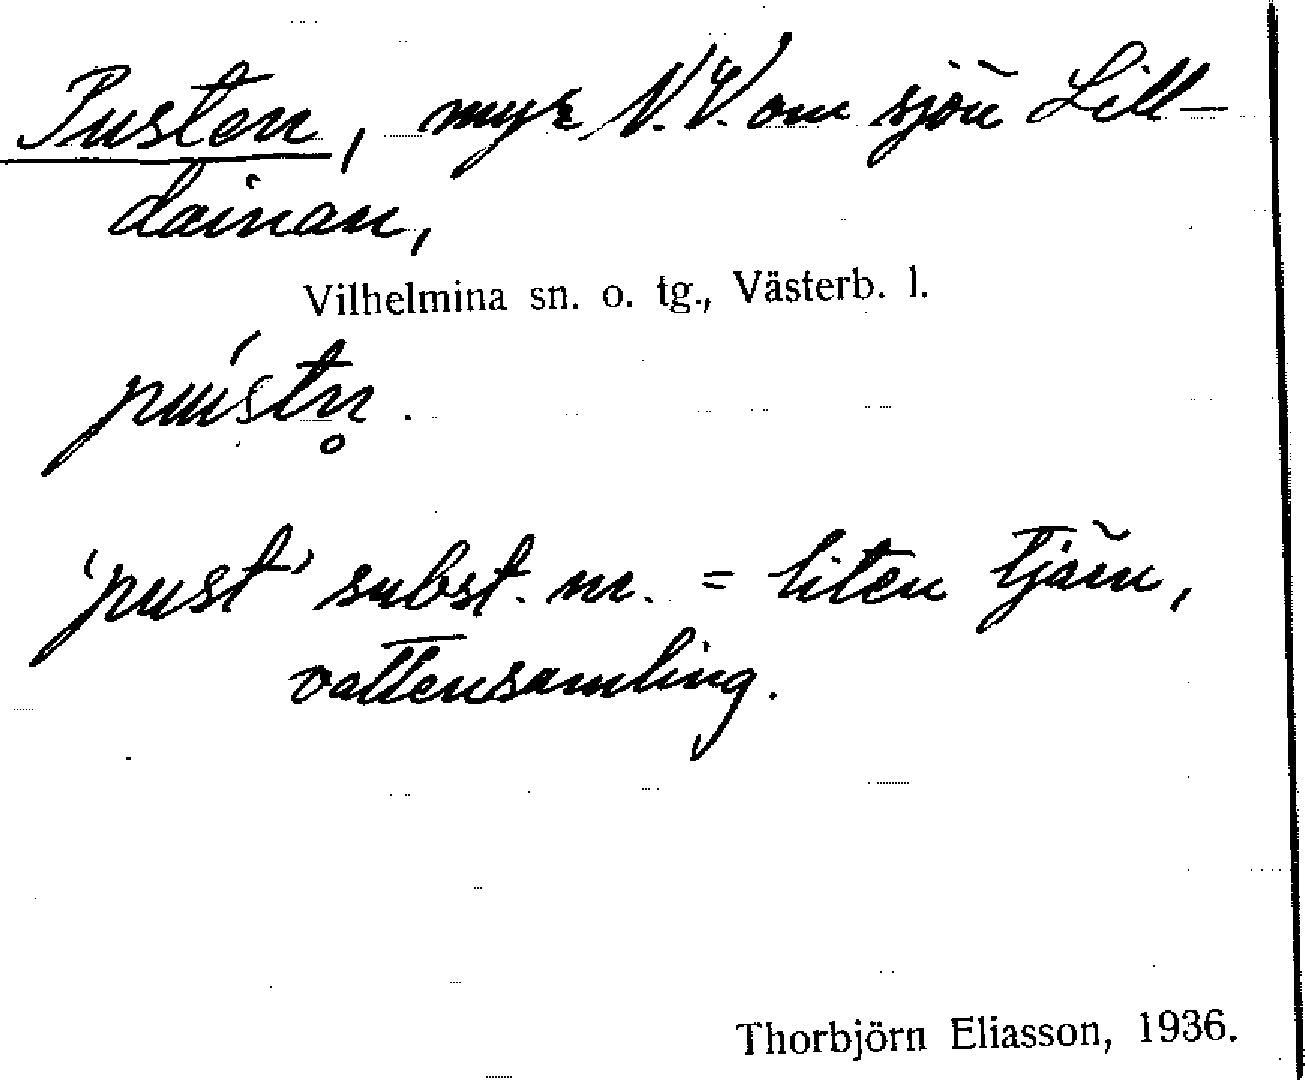 Pusten, myr N.V. om sjön Lill-
dainan,
Vilhelmina sn. o. tg., Västerb. l.
'pust' subst. m. = liten tjärn,
vattensamling.
Thorbjörn Eliasson, 1936.